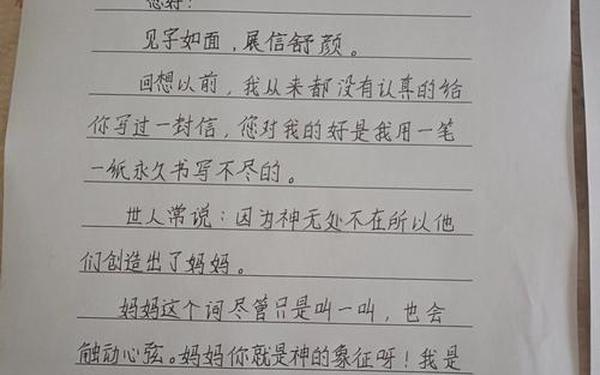 您好:
见字如面，展信舒颜。
回想以前，我从来都没有认真的给
你写过一封信，您对我的好是我用一笔
一纸永久书写不尽的。
世人常说：因为神无处不在所以他
们创造出了妈妈。
妈妈这个词尽管只是叫一叫，也会
触动心弦。妈妈你就是神的象征呀！我是